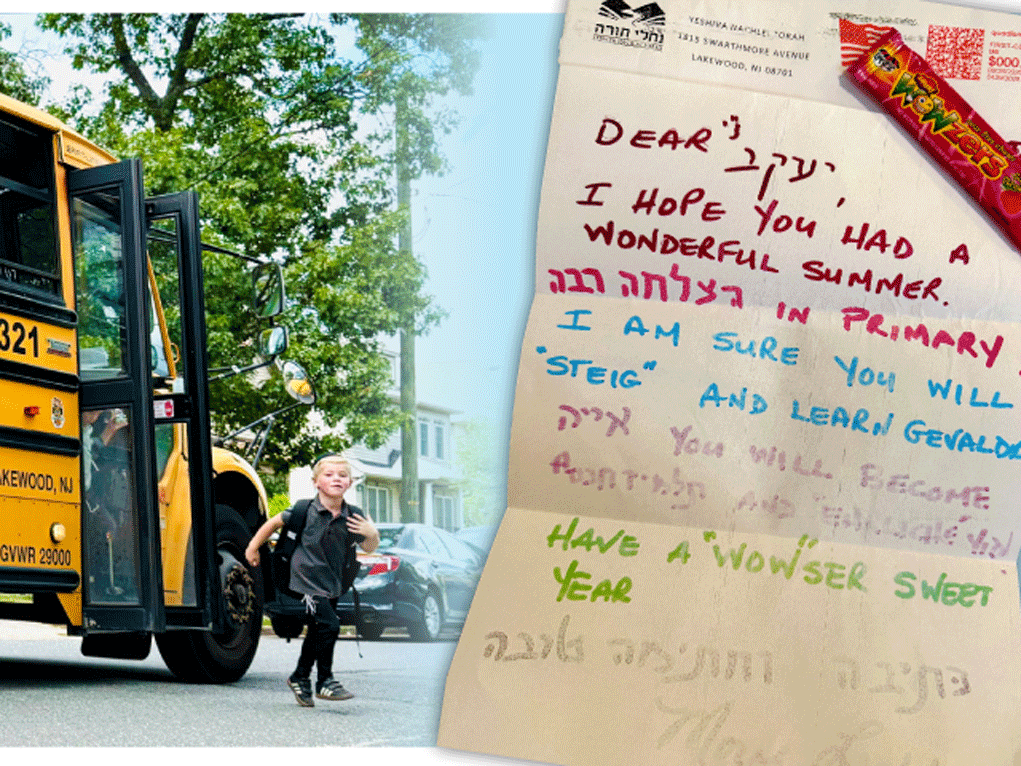 321
LAKEWOOD, NJ
GVWR 29000
נחלי תורה
YESHIVA NACHLEI TORAH
1815 SWARTHMORE AVENUE
LAKEWOOD, NJ 08701
$000.
WOWzers
DEAR יעקב ני'
I HOPE YOU HAD A
WONDERFUL SUMMER.
הצלחה רבה IN PRIMARY
I AM SURE YOU WILL
"STEIG" AND LEARN
אי״ה YOU WILL BECOME
תלמיד חכם AND
HAVE A "WOW"SER SWEET
YEAR
כתיבה וחתימה טובה